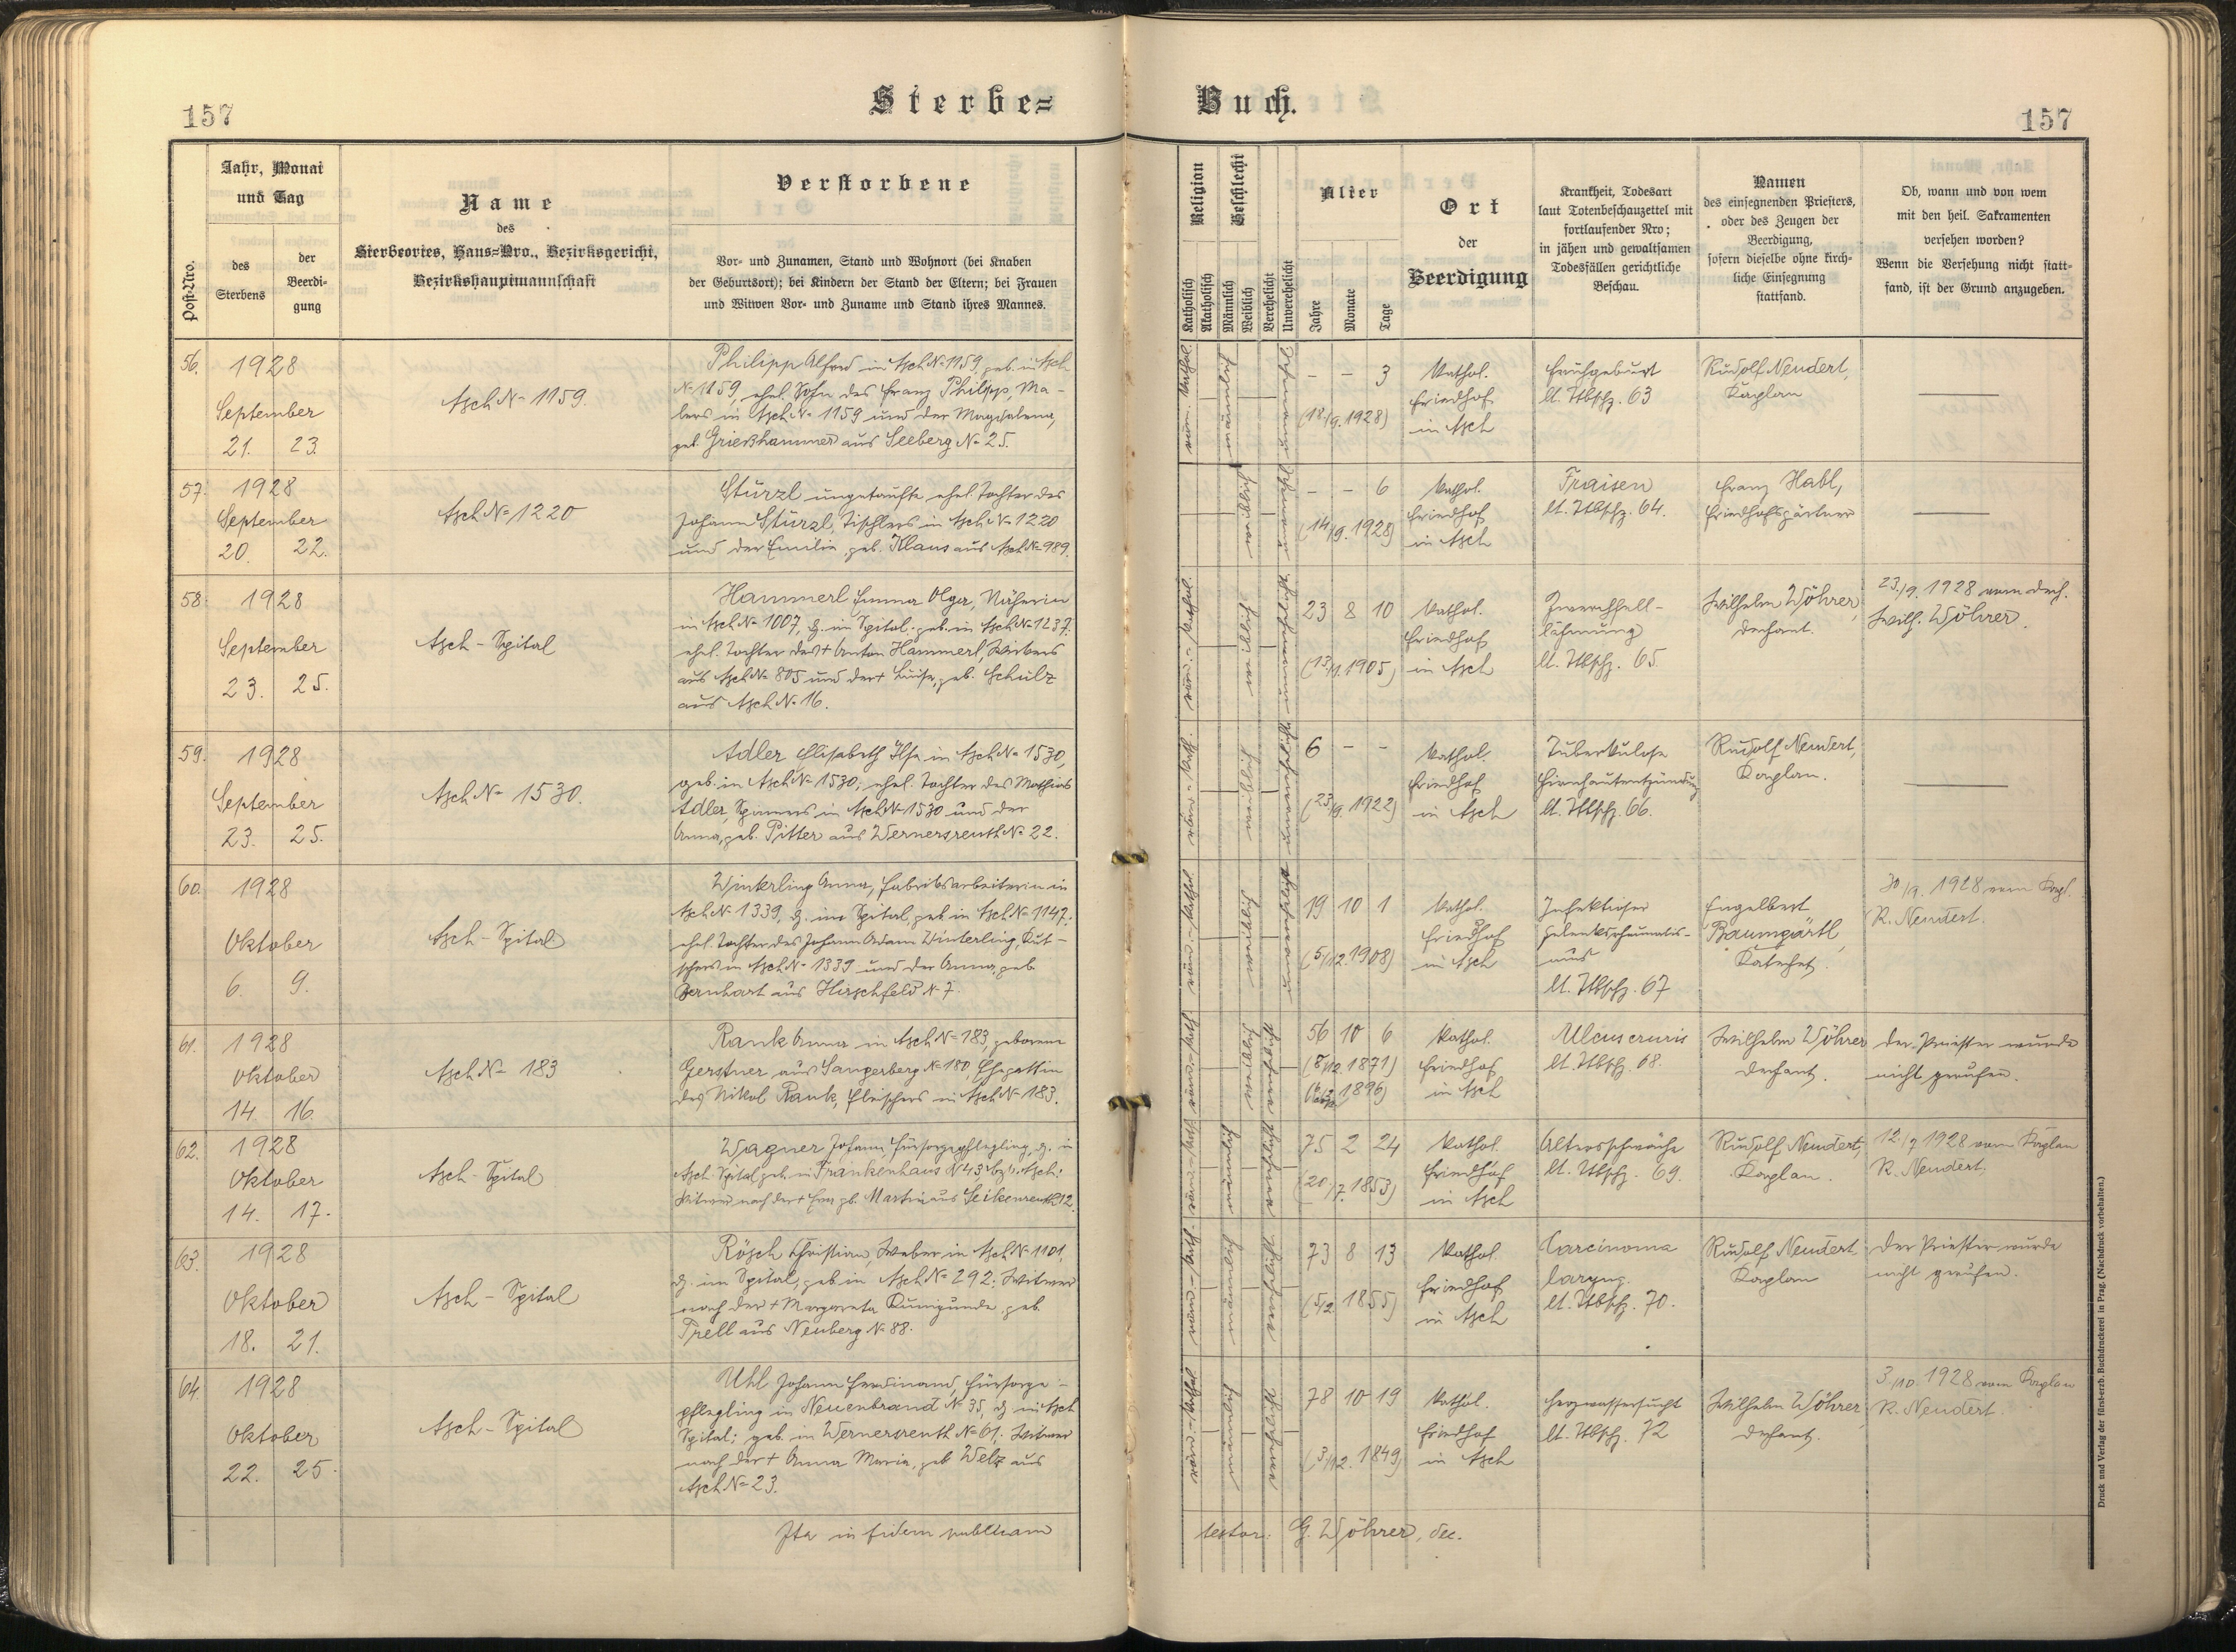 157
Sterbe=
Buch.
157
Post-Nro.
Jahr, Monat
und Tag
des
Sterbens
der
Beerdi-
gung
Name
des
Sterbeortes, Haus=Nro., Bezirksgericht,
Bezirkshauptmannschaft
Verstorbene
Vor- und Zunamen, Stand und Wohnort (bei Knaben
der Geburtsort); bei Kindern der Stand der Eltern; bei Frauen
und Witwen Vor- und Zuname und Stand ihres Mannes.
Religion
Katholisch
Akatholisch
Geschlecht
Männlich
Weiblich
Verehelicht
Unverehelicht
Alter
Jahre
Monate
Tage
Ort
der
Beerdigung
Krankheit, Todesart
laut Totenbeschauzettel mit
fortlaufender Nro;
in jähen und gewaltsamen
Todesfällen gerichtliche
Beschau.
Namen
des einsegnenden Priesters,
oder des Zeugen der
Beerdigung,
sofern dieselbe ohne kirch-
liche Einsegnung
stattfand.
Ob, wann und von wem
mit den heil. Sakramenten
versehen worden?
Wenn die Versehung nicht statt-
fand, ist der Grund anzugeben.
56.
1928
September
21. 23.
Asch No 1159.
Philipp Alfred in Asch No 1159, geb. in Asch
No 1159, ehel. Sohn des Franz Philipp, Ma-
lers in Asch No 1159 und der Magdalena,
geb. Grießhammer aus Seeberg No 25.
röm. kathol.
männlich
– – 3
(18/9. 1928)
Kathol.
Friedhof
in Asch
Frühgeburt
lt. Tbschz. 63
Rudolf Neudert,
Kaplan
57.
1928
September
20. 22.
Asch No 1220
Stürzl ungetaufte ehel. Tochter des
Johann Stürzl, Tischlers in Asch No 1220
und der Emilie, geb. Klaus aus Asch No 989.
weiblich
– – 6
(14/9. 1928)
Kathol.
Friedhof
in Asch
Fraisen
lt. Tbschz. 64.
Franz Habl,
Friedhofsgärtner
58.
1928
September
23. 25.
Asch - Spital
Hammerl Emma Olga, Näherin
in Asch No 1007, z. im Spital, geb. in Asch No 1237.
ehel. Tochter des + Anton Hammerl, Webers
aus Asch No 805 und der + Luise, geb. Schulz
aus Asch No 16.
röm.- kathol.
weiblich
23 8 10
(13/1. 1905)
Kathol.
Friedhof
in Asch
Zwerchfell-
lähmung
lt. Tbschz. 65.
Wilhelm Wöhrer,
Dechant.
23./9. 1928 vom Dech.
Wilh. Wöhrer.
59.
1928
September
23. 25.
Asch No 1530.
Adler Elisabeth Ilse in Asch No 1530,
geb. in Asch No 1530; ehel. Tochter des Mathias
Adler, Spinners in Asch No 1530 und der
Anna, geb. Pitter aus Wernersreuth No 22.
weiblich
6 – –
(23/9. 1922)
Kathol.
Friedhof
in Asch
Tuberkulose
Hirnhautentzündung
lt. Tbschz. 66.
Rudolf Neudert,
Kaplan.
60.
1928
Oktober
6. 9.
Asch - Spital
Winterling Anna, Fabriksarbeiterin in
Asch No 1339, z. im Spital, geb. in Asch No 1147.
ehel. Tochter des Johann Adam Winterling, Kut-
schers in Asch No 1339 und der Anna, geb.
Bernhart aus Hirschfeld No 7.
röm.- kathol.
weiblich
unverehelicht
19 10 1
(5/12. 1908)
Kathol.
Friedhof
in Asch
Infektiöser
Gelenksrheumatis-
mus
lt. Tbschz. 67
Engelbert
Baumgärtl,
Katechet.
30/9. 1928 vom Kapl.
R. Neudert.
61.
1928
Oktober
14. 16.
Asch No 183
Rank Anna in Asch No 183, geborene
Gerstner aus Sangerberg No 180, Ehegattin
des Nikol Rank, Fleischers in Asch No 183.
röm.- kath.
weiblich
verehelicht
56 10 6
(8/12. 1871)
1896)
Kathol.
Friedhof
in Asch
Ulcus cruris
lt. Tbschz. 68.
Wilhelm Wöhrer
Dechant.
Der Priester wurde
nicht gerufen.
62.
1928
Oktober
14. 17.
Asch - Spital
Wagner Johann, Fürsorgepflegling, z. in
Asch Spital, geb. in Krankenhaus No 43, Asch;
Witwer nach der + geb. Martin aus 12.
röm.- kath.
männlich
verehelicht
75 2 24
(20/7. 1853)
Kathol.
Friedhof
in Asch
Altersschwäche
lt. Tbschz. 69.
Rudolf Neudert,
Kaplan.
12./7 1928 vom Kaplan
R. Neudert.
63.
1928
Oktober
18. 21.
Asch - Spital
Rösch Christian, Weber in Asch No 1101,
z. im Spital, geb. in Asch No 292; Witwer
nach der + Margareta Kunigunde, geb.
Prell aus Neuberg No 88.
röm.- kath.
männlich
verehelicht
73 8 13
(5/2. 1855)
Kathol.
Friedhof
in Asch
Carcinoma
laryng.
lt. Tbschz. 70.
Rudolf Neudert
Kaplan
Der Priester wurde
nicht gerufen.
64.
1928
Oktober
22. 25.
Asch - Spital
Uhl Johann Ferdinand, Fürsorge-
pflegling in Neuenbrand No 35, z. in Asch
Spital; geb. in Wernersreuth No 61; Witwer
nach der + Anna Maria, geb. Welz aus
Asch No 23.
röm.- kathol.
männlich
verehelicht
78 10 19
(3/12. 1849)
Kathol.
Friedhof
in Asch
Herzwassersucht
lt. Tbschz. 72
Wilhelm Wöhrer,
Dechant.
3./10. 1928 vom Kaplan
R. Neudert.
Ita in fidem publicam
testor: G. Wöhrer, dec.
Druck und Verlag der fürst-erzb. Buchdruckerei in Prag. (Nachdruck vorbehalten.)